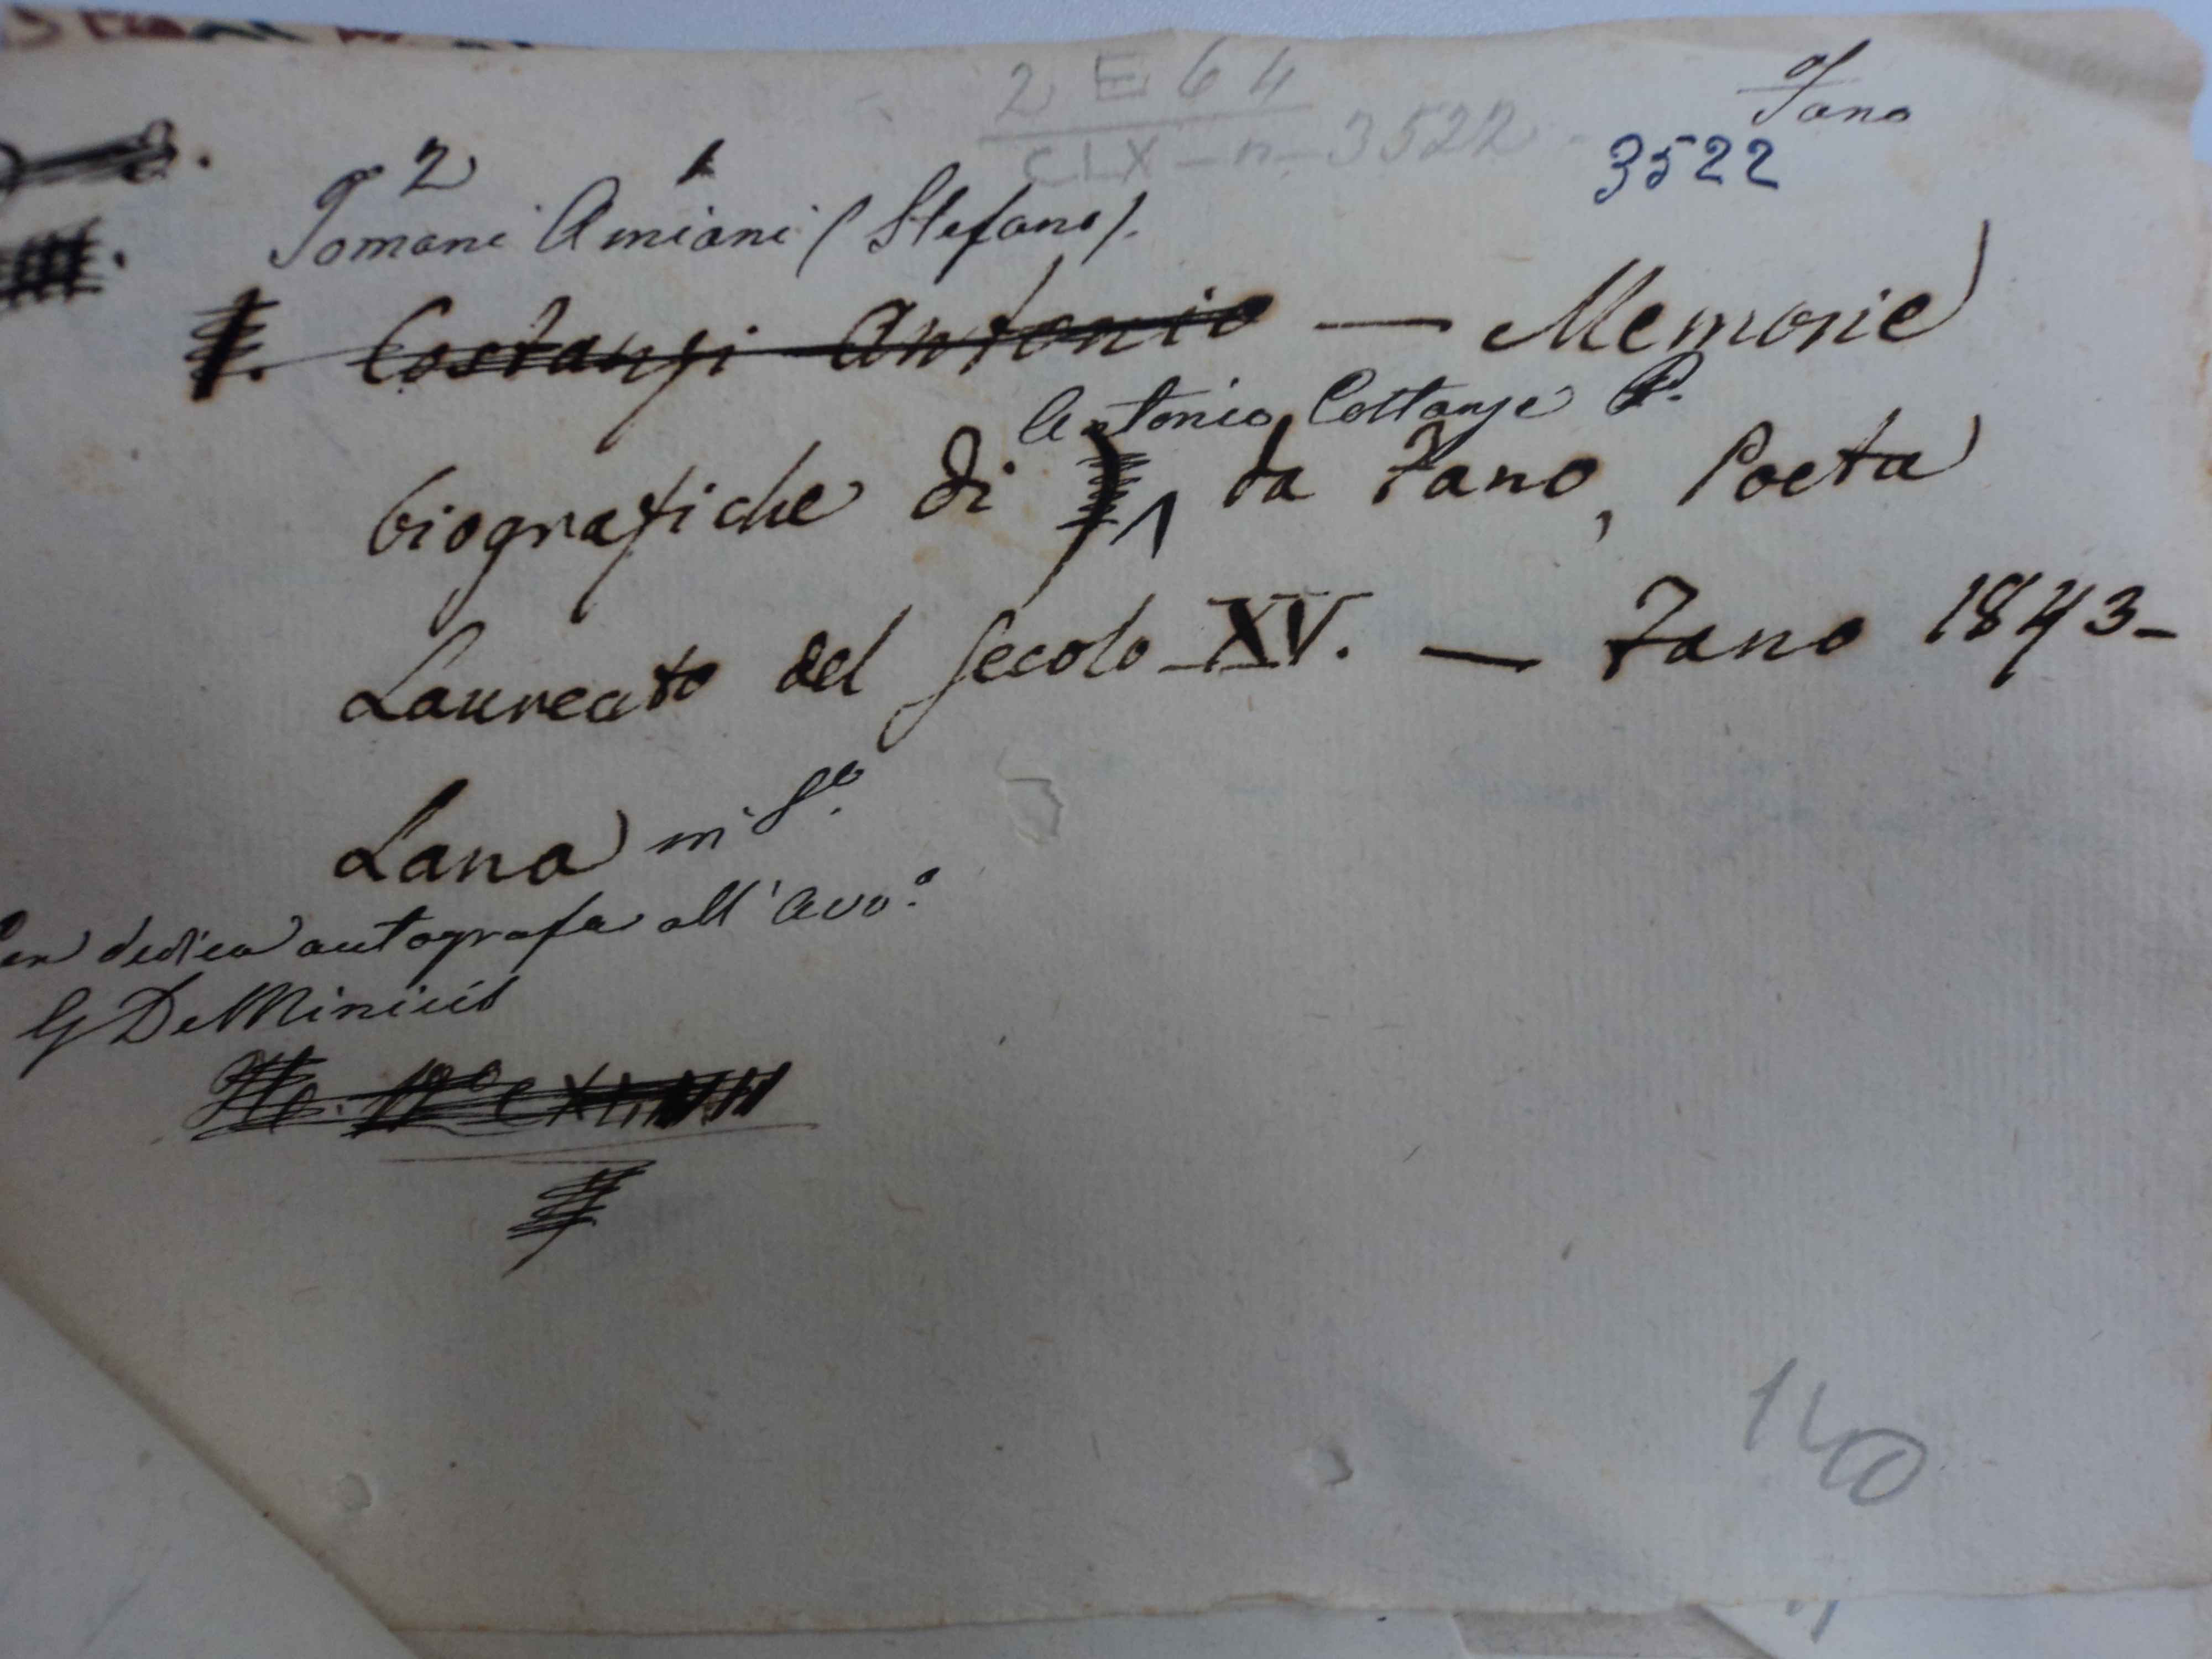 2 E 64
CLX - n - 3522
Fano
3522
2 1
Tomani Amiani (Stefano).
Costanzi Antonio — Memorie
Antonio Costanzi
biografiche di da Fano, Poeta
Laureato del secolo XV. — Fano 1843-
Lana in 8º.
Con dedica autografa all'Avv.º
G De Minicis